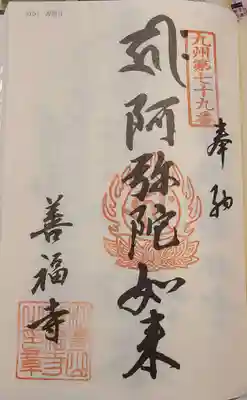 奉納
九州第七十九番
阿弥陀如来
善福寺